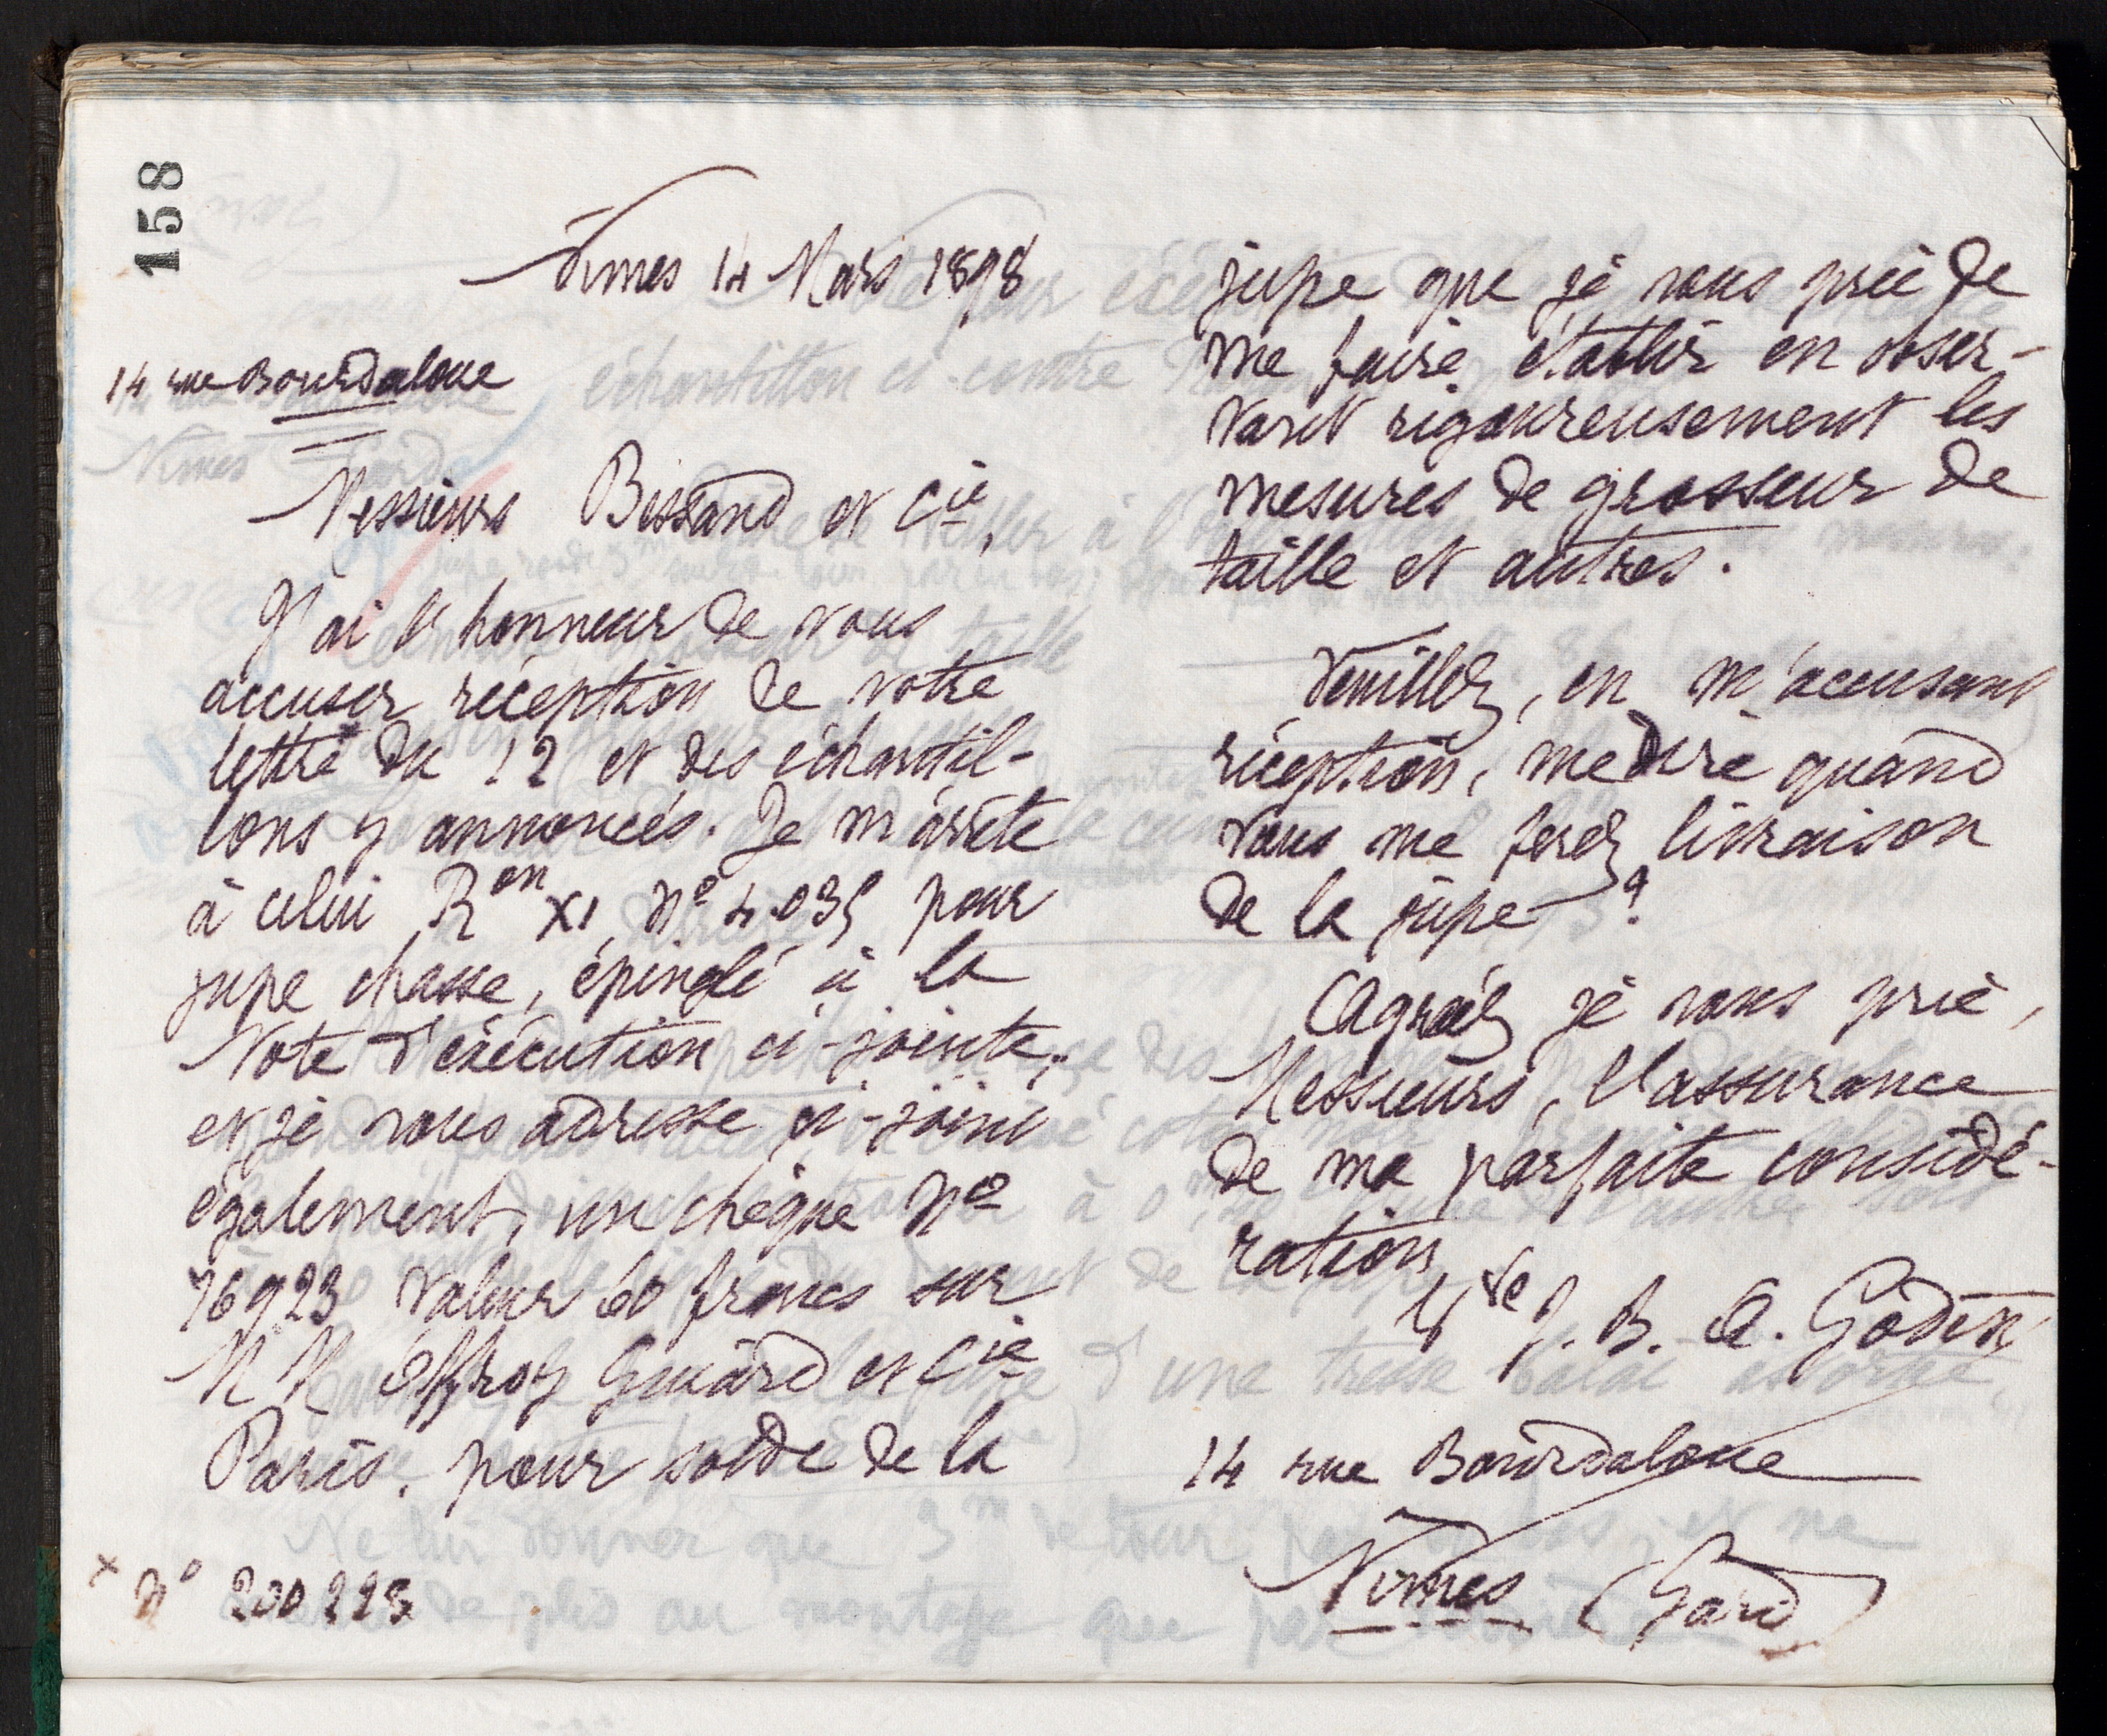 158
Nimes 14 Mars 1898
14 rue Bourdaloue
Messieurs Bessand et Cie,
J'ai l'honneur de vous
accuser réception de votre
lettre du 12 et des échantil-
lons y annoncés. Je m'arrête
à celui Ron XI No 4.035 pour
jupe chasse, épinglé à la
Note d'exécution ci-jointe,
et je vous adresse ci-joint
également, un chèque No
76923 valeur 60 francs sur
MM Offroy Guiard et Cie
Paris, pour solde de la
x No 200 228
jupe que je vous prie de
me faire établir en obser-
vant rigoureusement les
mesures de grosseur de
taille et autres.
Veuillez, en m'accusant
réception, me dire quand
vous me ferez livraison
de la jupe ?
Agréez je vous prie,
Messieurs, l'assurance
de ma parfaite considé-
ration
Vve J. B. A. Godin
14 rue Bourdaloue
Nimes (Gard)